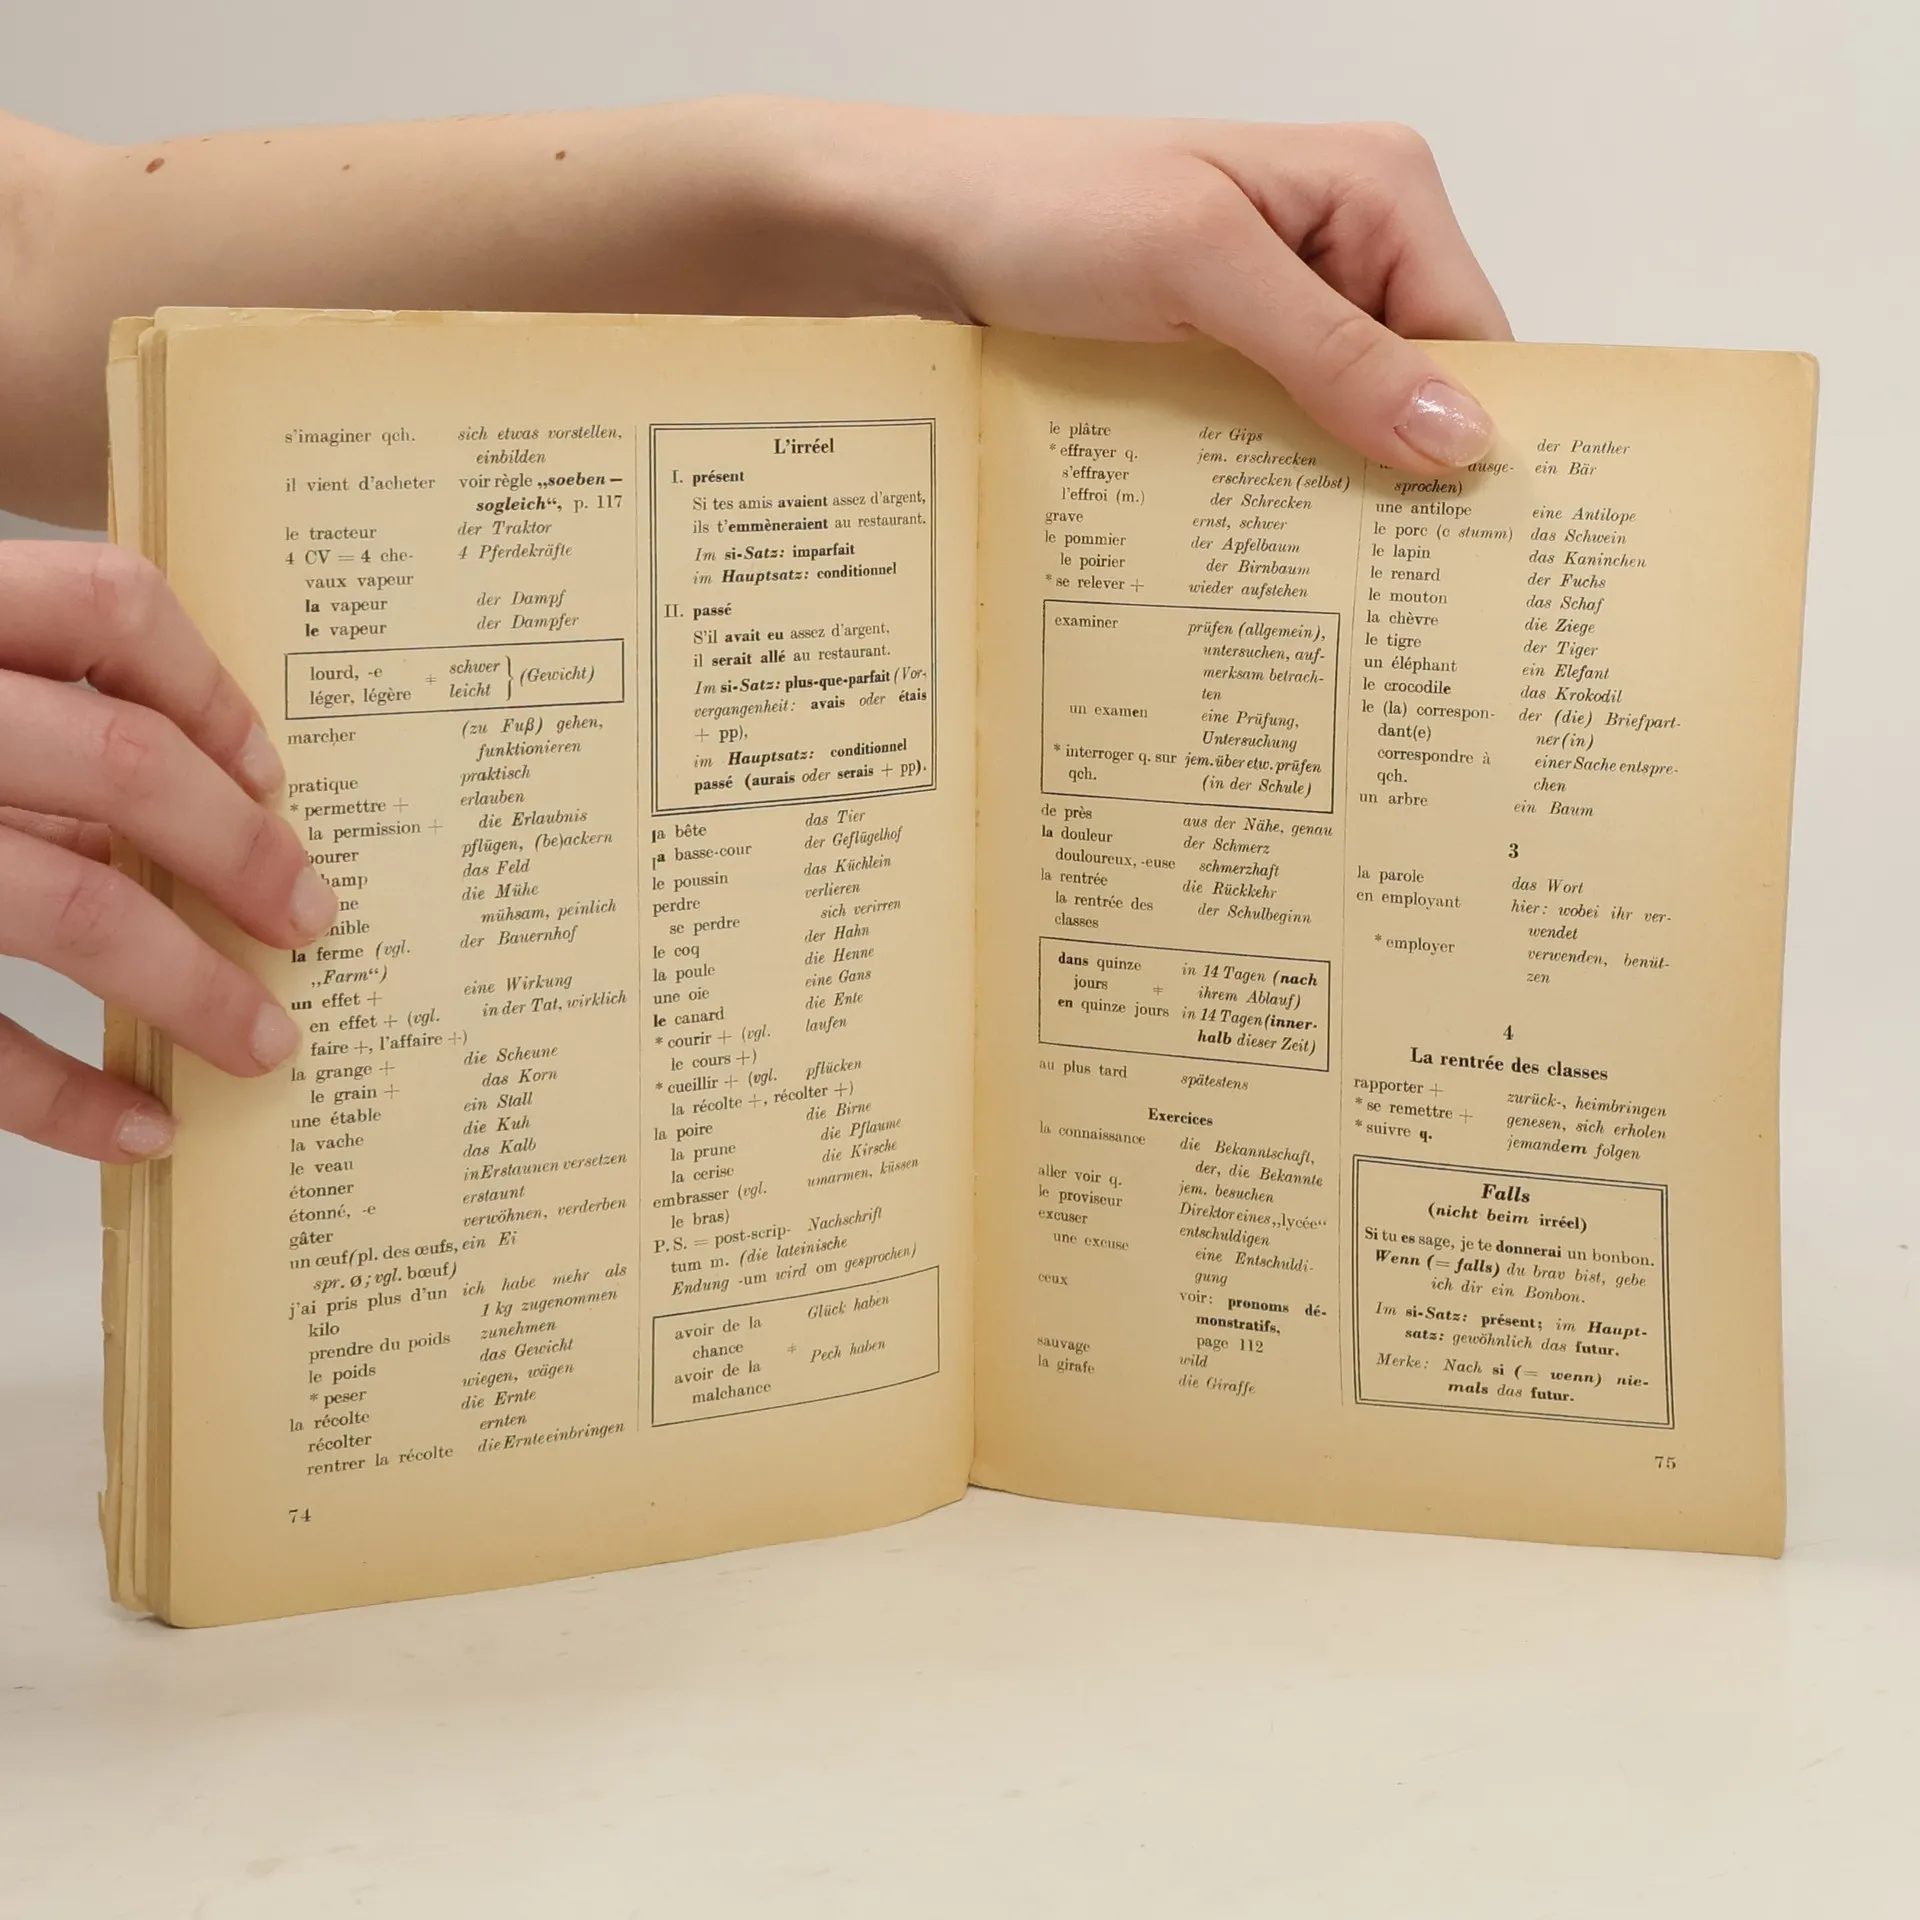 s'imaginer qch. sich etwas vorstellen,
einbilden
il vient d'acheter voir règle „soeben —
sogleich“, p. 117
le tracteur der Traktor
4 CV = 4 che- 4 Pferdekräfte
vaux vapeur
la vapeur der Dampf
le vapeur der Dampfer
lourd, -e ≠ schwer } (Gewicht)
léger, légère leicht
marcher (zu Fuß) gehen,
funktionieren
pratique praktisch
* permettre + erlauben
la permission + die Erlaubnis
bourer pflügen, (be)ackern
hamp das Feld
ne die Mühe
nible mühsam, peinlich
la ferme (vgl. der Bauernhof
„Farm“)
un effet + eine Wirkung
en effet + (vgl. in der Tat, wirklich
faire +, l'affaire +)
la grange + die Scheune
le grain + das Korn
une étable ein Stall
la vache die Kuh
le veau das Kalb
étonner in Erstaunen versetzen
étonné, -e erstaunt
gâter verwöhnen, verderben
un œuf (pl. des œufs, ein Ei
spr. ø; vgl. bœuf)
j'ai pris plus d'un ich habe mehr als
kilo 1 kg zugenommen
prendre du poids zunehmen
le poids das Gewicht
* peser wiegen, wägen
la récolte die Ernte
récolter ernten
rentrer la récolte die Ernte einbringen
74
L'irréel
I. présent
Si tes amis avaient assez d'argent,
ils t'emmèneraient au restaurant.
Im si-Satz: imparfait
im Hauptsatz: conditionnel
II. passé
S'il avait eu assez d'argent,
il serait allé au restaurant.
Im si-Satz: plus-que-parfait (Vor-
vergangenheit: avais oder étais
+ pp),
im Hauptsatz: conditionnel
passé (aurais oder serais + pp).
la bête das Tier
la basse-cour der Geflügelhof
le poussin das Küchlein
perdre verlieren
se perdre sich verirren
le coq der Hahn
la poule die Henne
une oie eine Gans
le canard die Ente
* courir + (vgl. laufen
le cours +)
* cueillir + (vgl. pflücken
la récolte +, récolter +)
la poire die Birne
la prune die Pflaume
la cerise die Kirsche
embrasser (vgl. umarmen, küssen
le bras)
P.S. = post-scrip- Nachschrift
tum m. (die lateinische
Endung -um wird om gesprochen)
avoir de la Glück haben
chance ≠
avoir de la Pech haben
malchance
le plâtre der Gips
* effrayer q. jem. erschrecken
s'effrayer erschrecken (selbst)
l'effroi (m.) der Schrecken
grave ernst, schwer
le pommier der Apfelbaum
le poirier der Birnbaum
* se relever + wieder aufstehen
examiner prüfen (allgemein),
untersuchen, auf-
merksam betrach-
ten
un examen eine Prüfung,
Untersuchung
* interroger q. sur jem. über etw. prüfen
qch. (in der Schule)
de près aus der Nähe, genau
la douleur der Schmerz
douloureux, -euse schmerzhaft
la rentrée die Rückkehr
la rentrée des der Schulbeginn
classes
dans quinze in 14 Tagen (nach
jours ≠ ihrem Ablauf)
en quinze jours in 14 Tagen (inner-
halb dieser Zeit)
au plus tard spätestens
Exercices
la connaissance die Bekanntschaft,
der, die Bekannte
aller voir q. jem. besuchen
le proviseur Direktor eines „lycée“
excuser entschuldigen
une excuse eine Entschuldi-
gung
ceux voir: pronoms dé-
monstratifs,
page 112
sauvage wild
la girafe die Giraffe
der Panther
ausge- ein Bär
sprochen)
une antilope eine Antilope
le porc (c stumm) das Schwein
le lapin das Kaninchen
le renard der Fuchs
le mouton das Schaf
la chèvre die Ziege
le tigre der Tiger
un éléphant ein Elefant
le crocodile das Krokodil
le (la) correspon- der (die) Briefpart-
dant(e) ner(in)
correspondre à einer Sache entspre-
qch. chen
un arbre ein Baum
3
la parole das Wort
en employant hier: wobei ihr ver-
wendet
* employer verwenden, benüt-
zen
4
La rentrée des classes
rapporter + zurück-, heimbringen
* se remettre + genesen, sich erholen
* suivre q. jemandem folgen
Falls
(nicht beim irréel)
Si tu es sage, je te donnerai un bonbon.
Wenn (= falls) du brav bist, gebe
ich dir ein Bonbon.
Im si-Satz: présent; im Haupt-
satz: gewöhnlich das futur.
Merke: Nach si (= wenn) nie-
mals das futur.
75